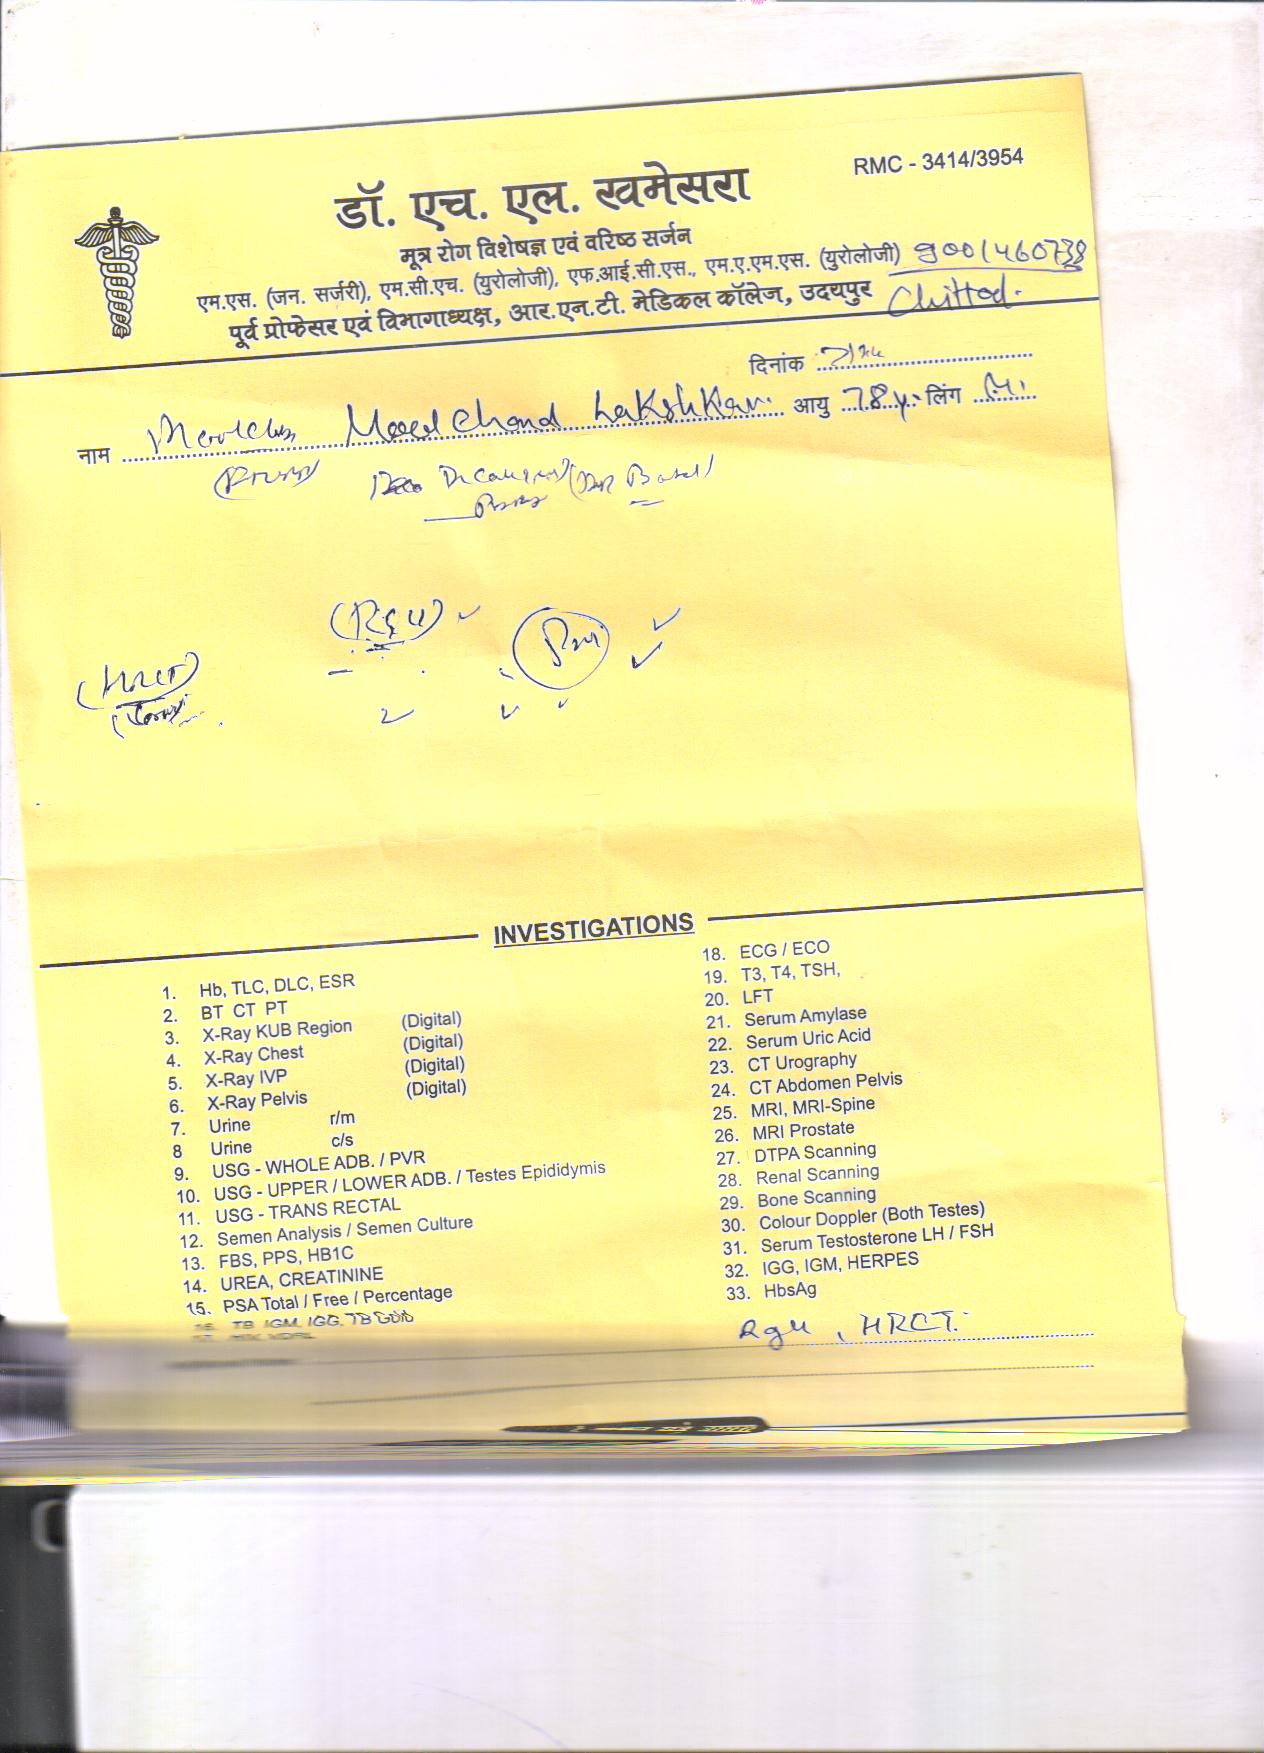 RMC - 3414/3954
डॉ. एच. एल. खमेसरा
मूत्र रोग विशेषज्ञ एवं वरिष्ठ सर्जन
एम.एस. (जन. सर्जरी), एम.सी.एच. (युरोलोजी), एफ.आई.सी.एस., एम.ए.एम.एस. (युरोलोजी)
पूर्व प्रोफेसर एवं विभागाध्यक्ष, आर.एन.टी. मेडिकल कॉलेज, उदयपुर
Chittod.
दिनांक
नाम Mool Chand Lakshkar. आयु 78 y. लिंग M.
(RGU)
(HRCT)
INVESTIGATIONS
1. Hb, TLC, DLC, ESR
2. BT CT PT
3. X-Ray KUB Region (Digital)
4. X-Ray Chest (Digital)
5. X-Ray IVP (Digital)
6. X-Ray Pelvis (Digital)
7. Urine r/m
8 Urine c/s
9. USG - WHOLE ADB. / PVR
10. USG - UPPER / LOWER ADB. / Testes Epididymis
11. USG - TRANS RECTAL
12. Semen Analysis / Semen Culture
13. FBS, PPS, HB1C
14. UREA, CREATININE
15. PSA Total / Free / Percentage
16. TB IGM, IGG, TB Gold
18. ECG / ECO
19. T3, T4, TSH,
20. LFT
21. Serum Amylase
22. Serum Uric Acid
23. CT Urography
24. CT Abdomen Pelvis
25. MRI, MRI-Spine
26. MRI Prostate
27. DTPA Scanning
28. Renal Scanning
29. Bone Scanning
30. Colour Doppler (Both Testes)
31. Serum Testosterone LH / FSH
32. IGG, IGM, HERPES
33. HbsAg
Rgu, HRCT.